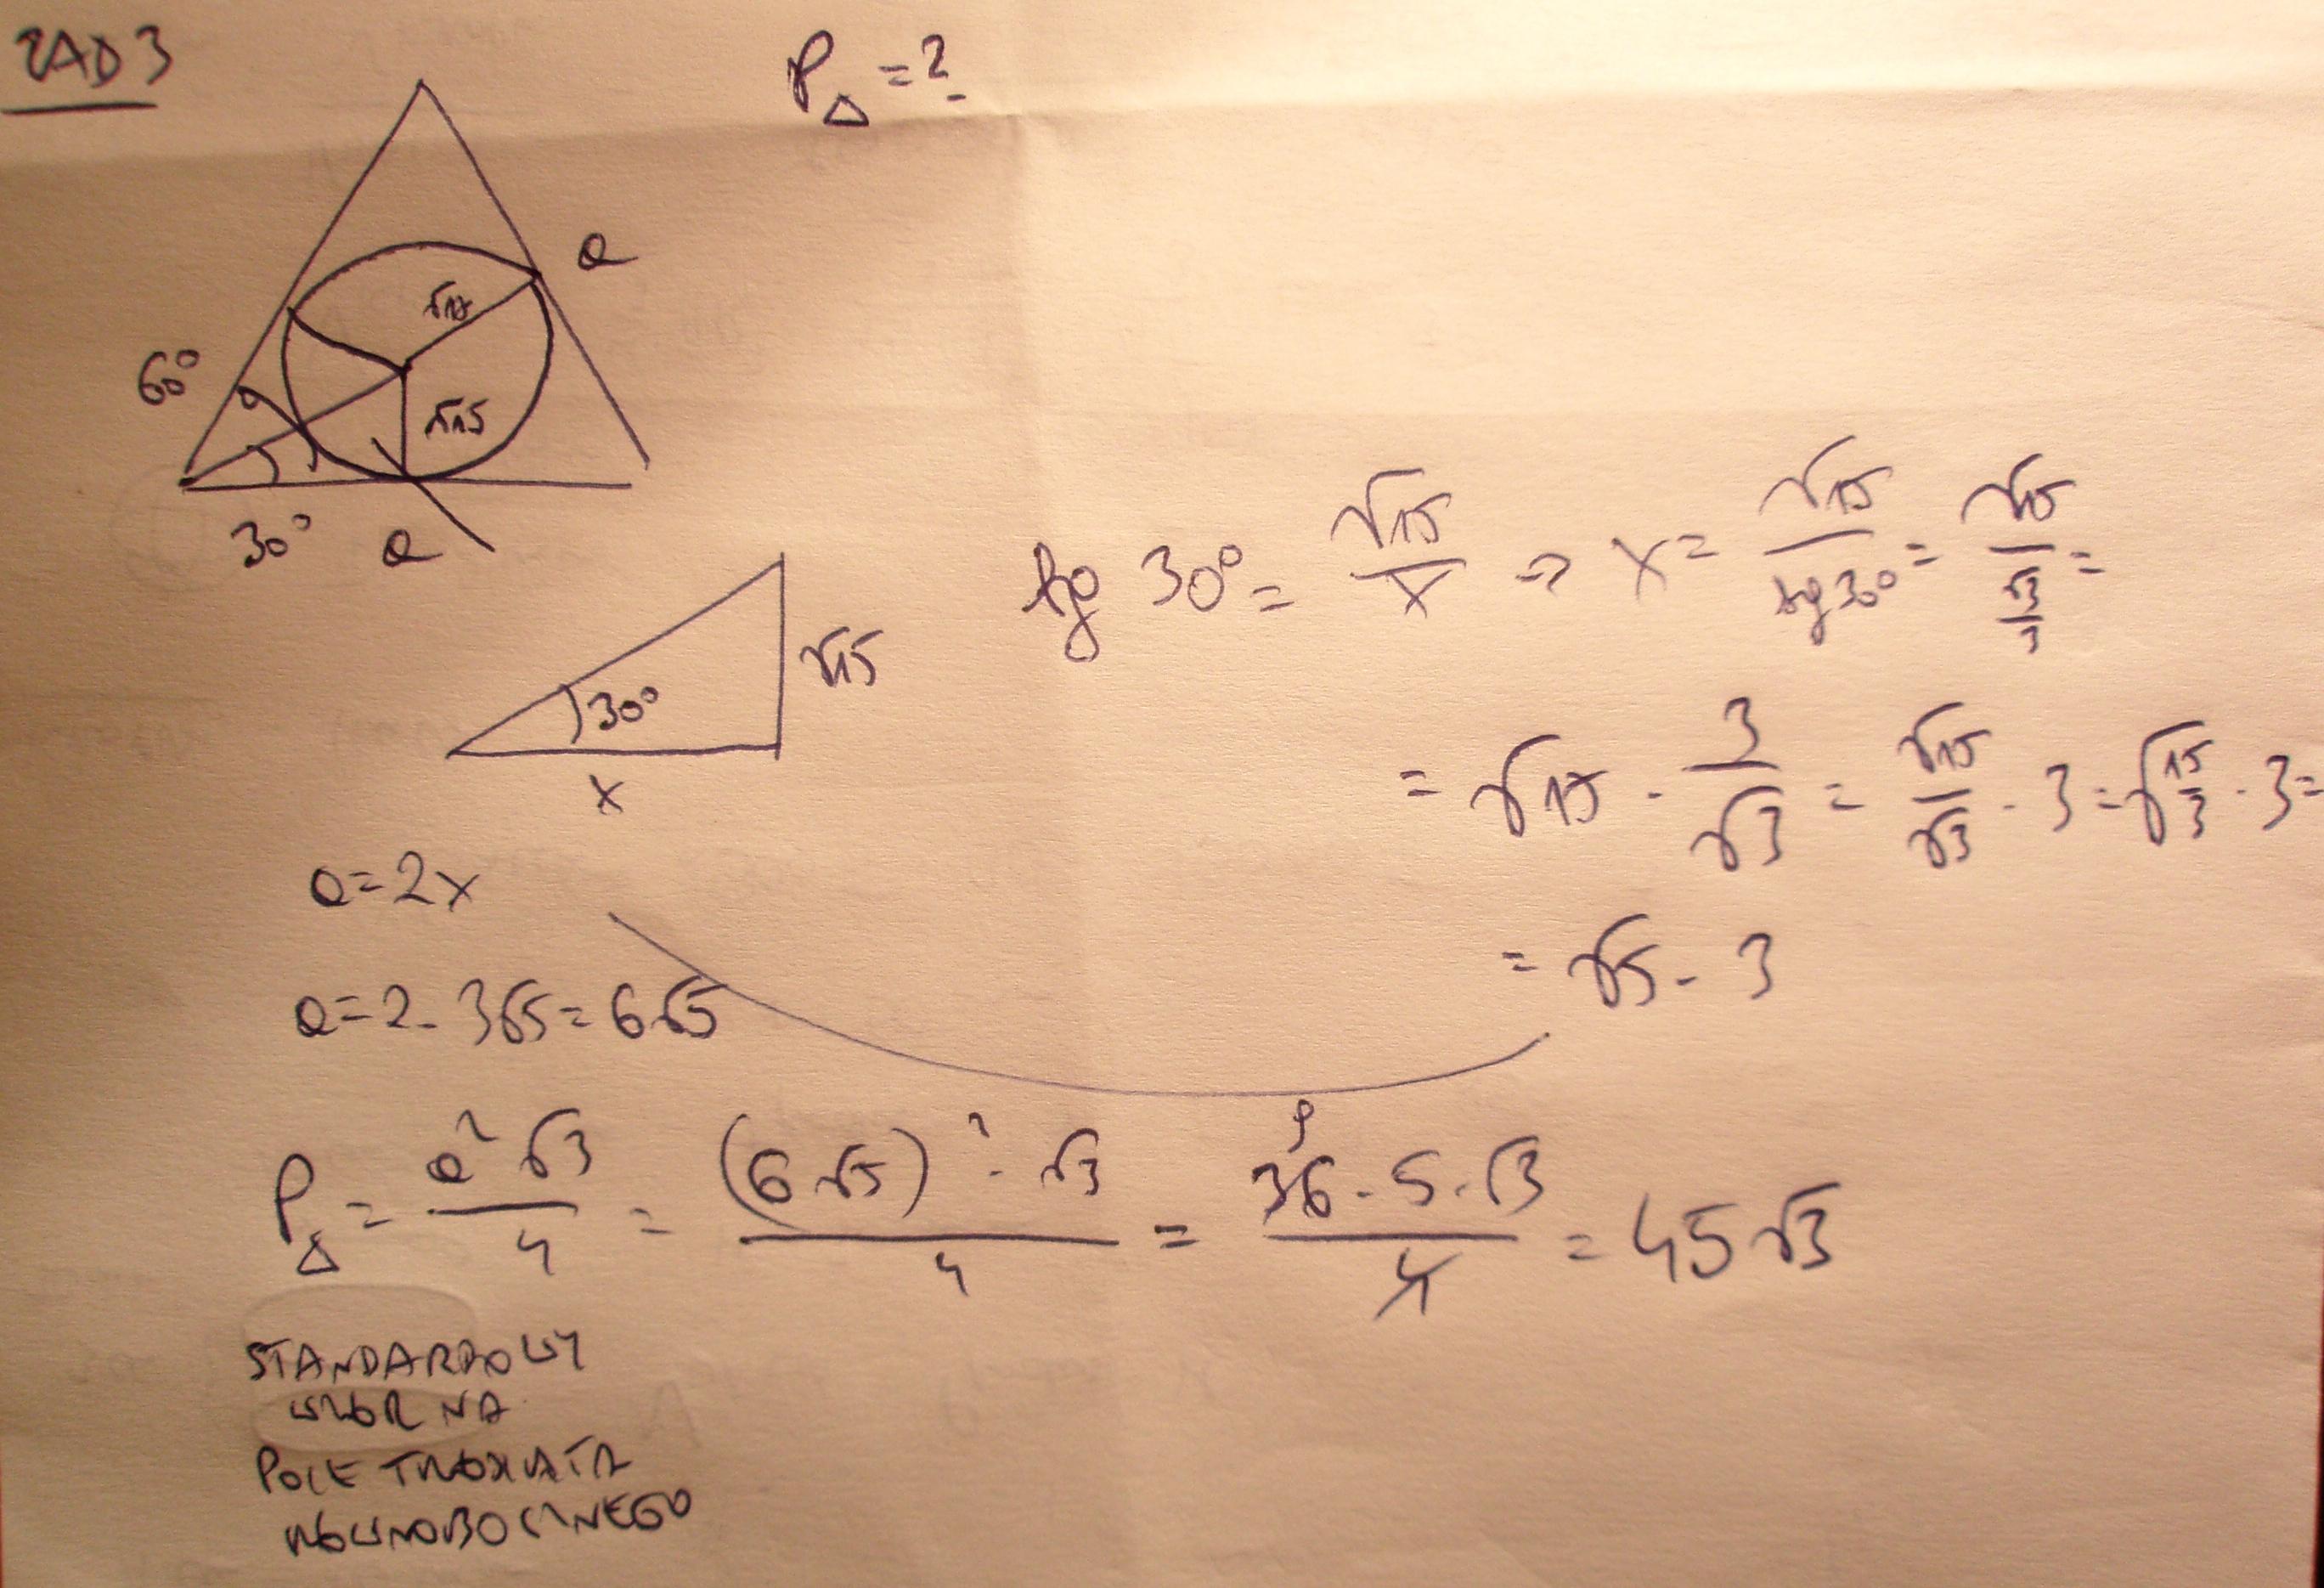 ZAD 3
P△ = ?
a
√15
60°
√15
30°
a
tg 30° = √15/x => x = √15/tg 30° = √15/(√3/3) =
√15
30°
x
= √15 · 3/√3 = √15/√3 · 3 = √(15/3) · 3 =
a = 2x
= √5 · 3
a = 2 · 3√5 = 6√5
P△ = a²√3/4 = (6√5)² · √3/4 = 36 · 5 · √3/4 = 45√3
9
STANDARDOWY
WZÓR NA
POLE TRÓJKĄTA
RÓWNOBOCZNEGO